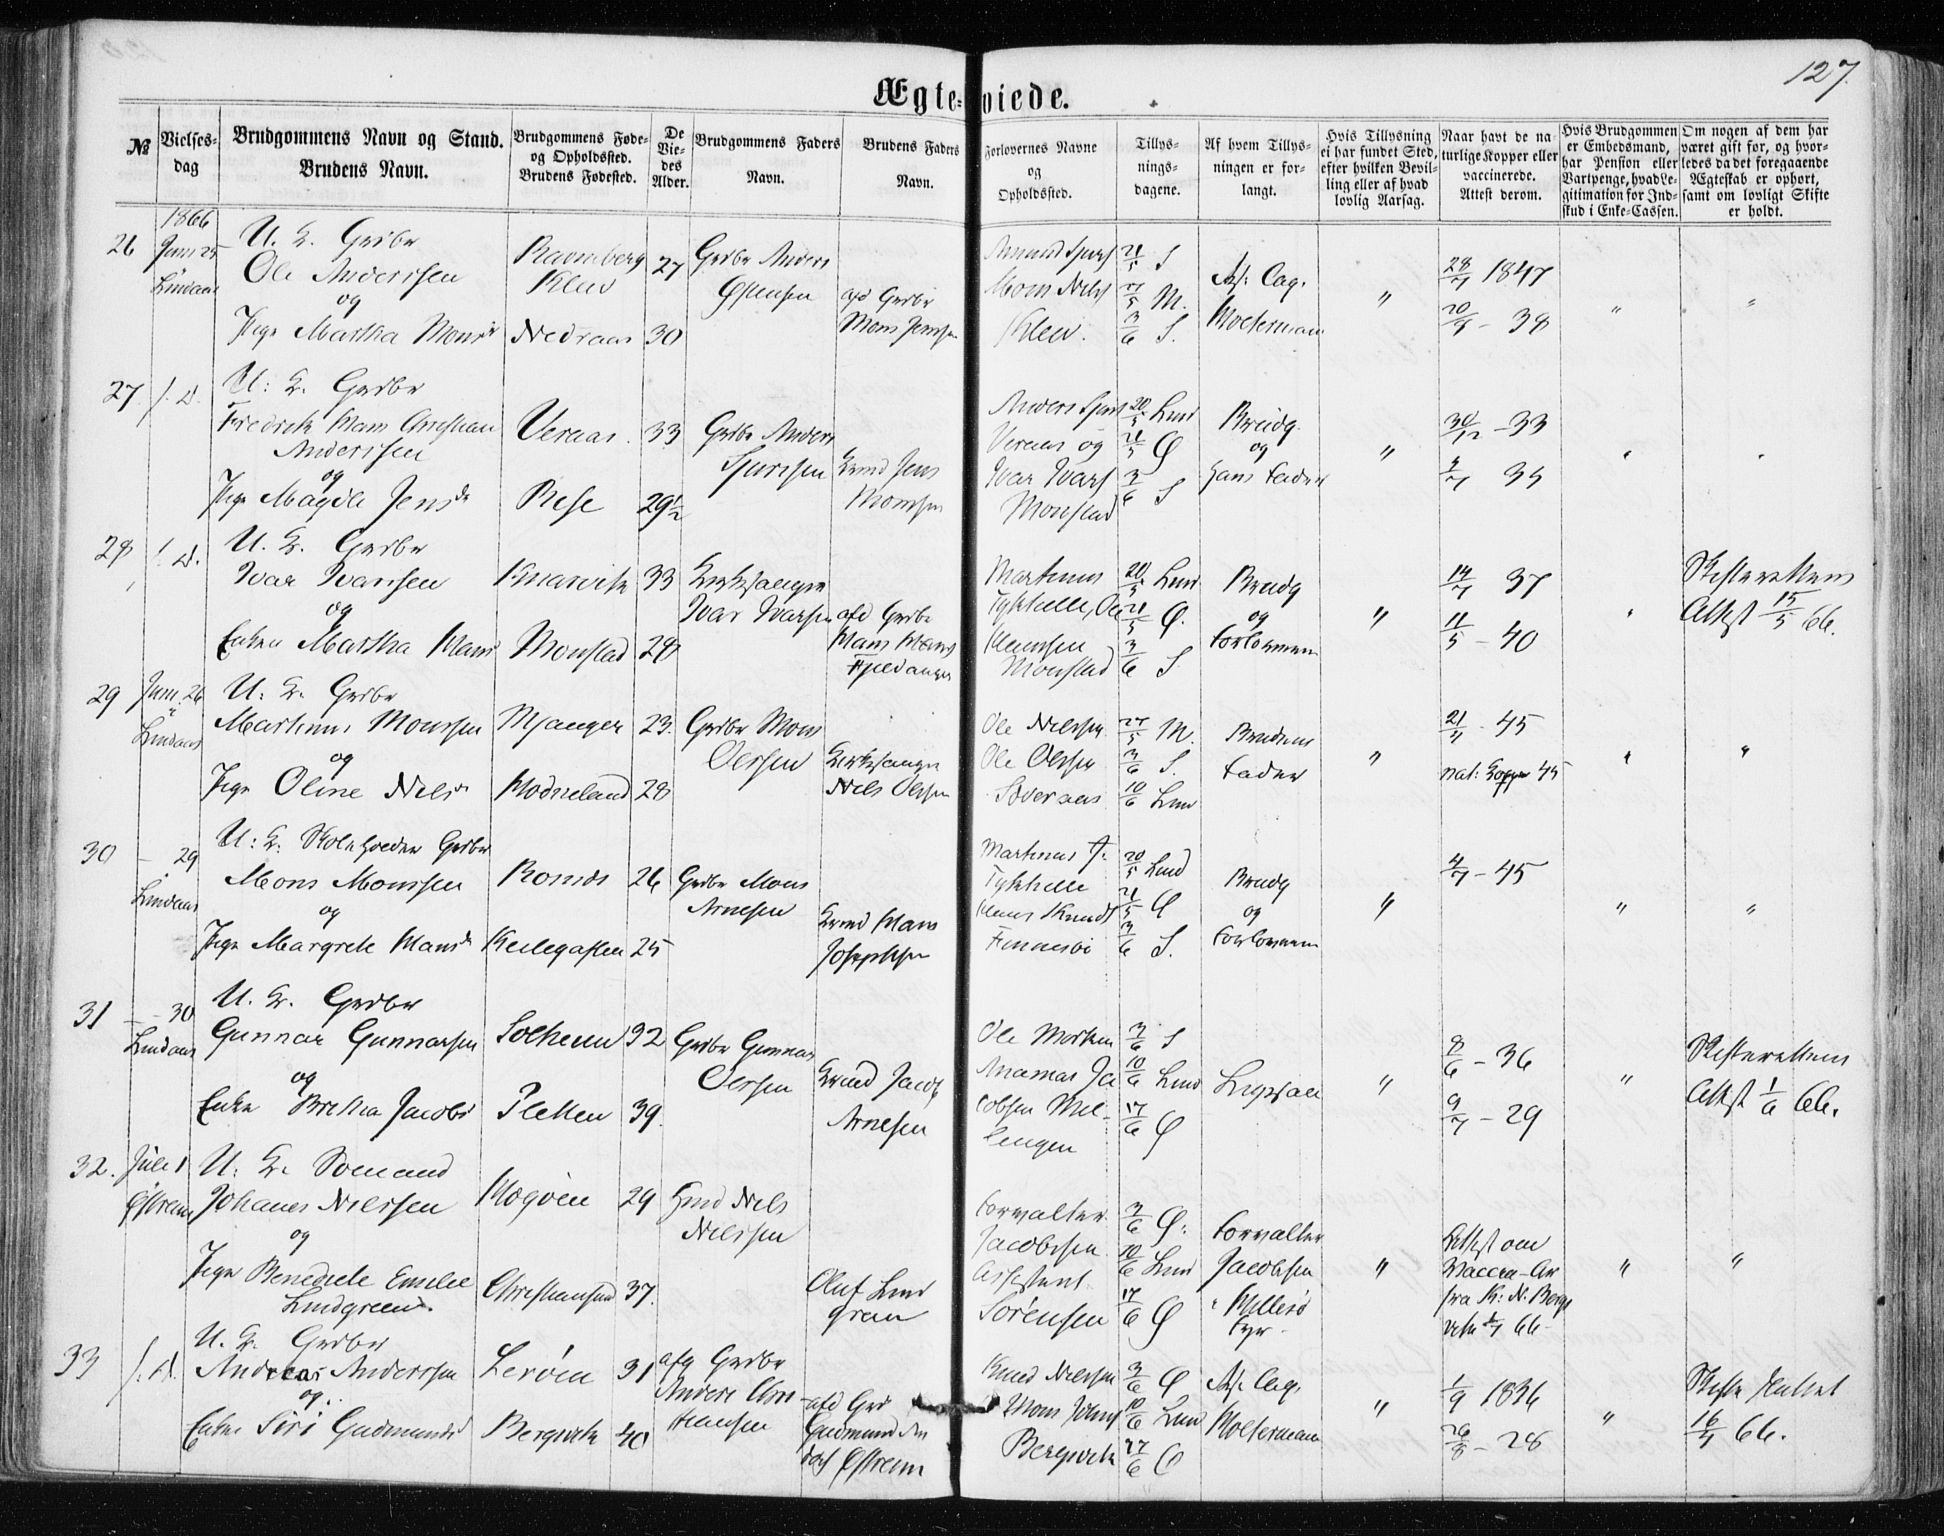 127.
Ægteviede.
№
Vielses-
dag
Brudgommens Navn og Stand.
Brudens Navn.
Brudgommens Føde-
og Opholdssted.
Brudens Fødested.
De
Vie-
des
Alder.
Brudgommens Faders
Navn.
Brudens Faders
Navn.
Forlovernes Navne
og
Opholdssted.
Tillys-
nings-
dagene.
Af hvem Tillys-
ningen er for-
langt.
Hvis Tillysning
ei har fundet Sted,
efter hvilken Bevil-
ling eller af hvad
lovlig Aarsag.
Naar havt de na-
turlige Kopper eller
vaccinerede.
Attest derom.
Hvis Brudgommen
er Embedsmand,
har Pension eller
Vartpenge, hvad Le-
gitimation for Ind-
skud i Enke-Cassen.
Om nogen af dem har
været gift før, og hvor-
ledes da det foregaaende
Ægteskab er ophørt,
samt om lovligt Skifte
er holdt.
1866
26 Juni 25
Lindaas
U. K. Grdbr
Ole Anderssen
og
Pige Martha Monsd
Ravneberg
Klev
Nedraas
27
30
Grdbr Anders
Østensen
afd Grdbr
Mons Jenssen
Mons Nils
Klev.
21/5 S
27/5 M.
3/6 S.
Kf: Cag.
Wolterman
"
28/7 1847
20/9 - 38
"
"
27 s. D.
U: K. Grdbr
Fredrik Hans Christian
Anderssen
og
Pige Magdele Jensd
Veraas
Rese
33
29½
Grdbr Anders
Sjursen
Huusmd Jens
Monsen
Anders Sjurs
Veraas og
Ivar Ivars
Monstad
20/5 Lind
21/5 Ø
3/6 S
Brudg.
og
Hans Fader
"
30/12 - 33
35
28 s. D.
U. K. Grdbr
Ivar Ivarsen
og
Enken Martha Hansd
Knarvik
Monstad
33
28
Kirkesanger
Ivar Ivarsen
afd Grdbr
Hans Hans
Fjeldanger
Martinus
Tykkhelle, Ole
Klemsen
Monstad
20/5 Lind
21/5 Ø.
3/6 S.
Brudg
og
Forloveren
"
14/7 37
11/5 - 40
Skifterettens
Attest 15/5 66.
29 Juni 26
Lindaas
U. K. Grdbr
Martinus Monssen
og
Pige Oline Nilsd
Mjanger
Hodneland
23.
28
Grdbr Mons
Olssen
Kirkesanger
Nils Olssen
Ole Nilssen
Ole Olssen
Sæveraas
27/5 M.
3/6 S.
10/6 Lind
Brudens
Fader
"
21/11 - 45
nat: Kopper 45
"
"
30 - 29
Lindaas
U: K. Skoleholder Grdbr
Mons Monssen
og
Pige Margrete Hansd
Romos
Keilegavlen
26
25
Grdbr Mons
Arnesen
Huusmd Hans
Josephsen
Martinus A:
Tykkhelle
Hans Knuds
Finnesbø
20/5 Lind
21/5 Ø
3/6 S.
Brudg
og
Forloveren
"
4/7 - 45
"
"
31 - 30
Lindaas
U. K. Grdbr
Gunnar Gunnarsen
og
Enke Brita Jacobsd
Solheim
Pletten
32
39.
Grdbr Gunnar
Olssen
Huusmd Jacob
Arnesen
Ole Morten
Anamas Ja
cobsen Mel-
lingen
3/6 S
10/6 Lind
17/6 Ø
"
8/6 - 36
9/7 - 29
"
Skifterettens
Attest 1/6 66.
32. Juli 1
Østrem
U. K. Sømand
Johanes Nilssen
og
Pige Benedicte Emelie
Lindgreen.
Hogøen
Christiansund
29
37.
Huusmd Nils
Nilssen
Oluf Lind
green
Forvalter
Jacobsen
Assistent
Sørensen
3/6 Ø.
10/6 Lind
17/6 Ø
Forvalter
Jacobsen
Hellesø
Fyr.
"
Attest om
Vaccina-
fra
66
"
"
33 s. D.
U. K. Grdbr
Andreas Anderssen
og
Enke Siri Gudmundsd
Lerøen
Bergsvik
31
40
afg Grdbr
Anders Chri-
stiansen
afd Grd
Gudmund An
ders Østrem
Knud Nilssen
Mons Johns
Bergsvik
3/6 Ø
10/6 Lind
17/6 Ø
Kf. Cag.
Wolterman
"
1/9 1836
26/8 - 28
"
Skifte sluttet
16/4 66.